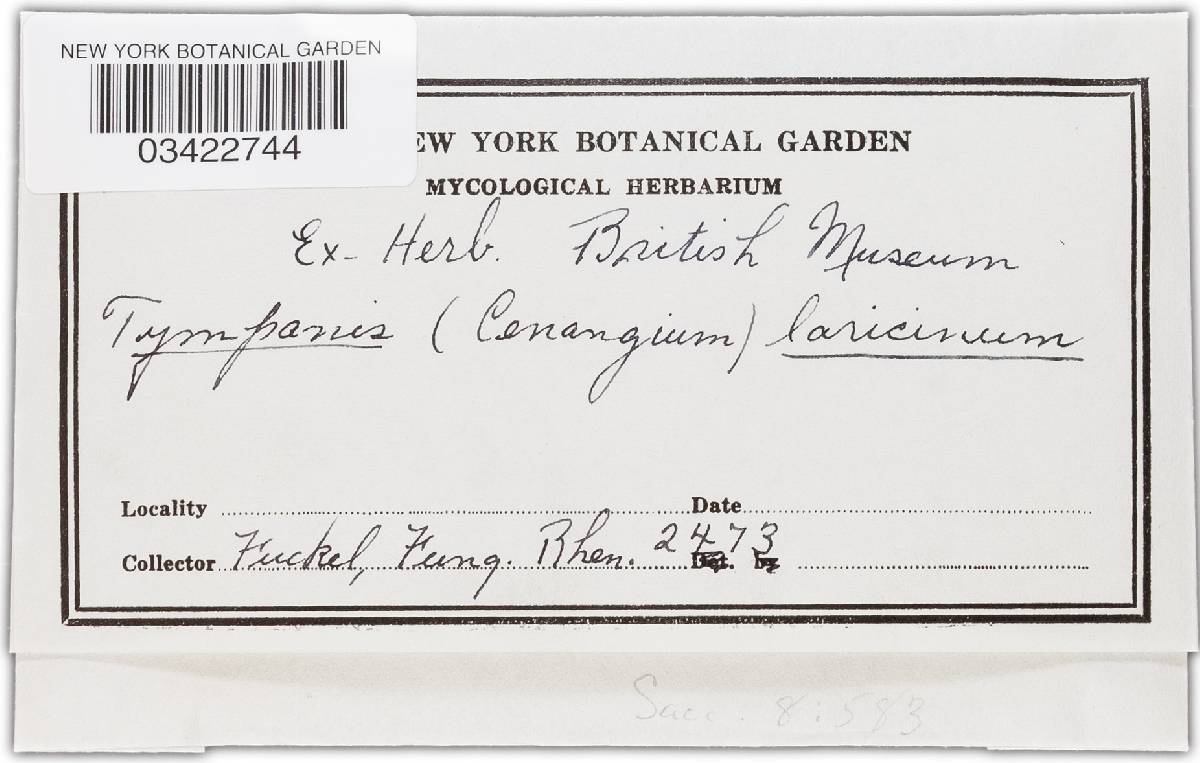 NEW YORK BOTANICAL GARDEN
03422744
EW YORK BOTANICAL GARDEN
MYCOLOGICAL HERBARIUM
Ex-Herb. British Museum
Tympanis (Cenangium) laricinum
Locality Date
Collector Fuckel, Fung. Rhen. 2473 Det. by
Sacc. 8:583